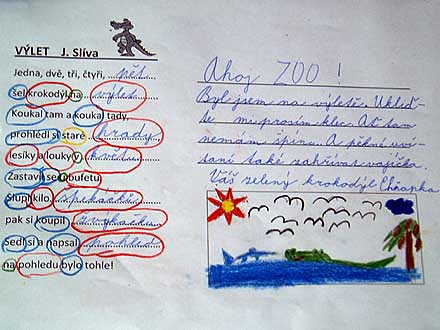 VÝLET J. Slíva
Jedna, dvě, tři, čtyři, pět
šel krokodýl na výlet.
Koukal tam a koukal tady,
prohlédl si staré hrady,
lesíky a louky v květ
Zastavil se u bufetu.
Slupl kilo špekáčků,
pak si koupil žvýkačku
Sedl si a napsal pohled
na pohledu bylo tohle!
Ahoj ZOO !
Byl jsem na výletě. Ukliď-
te mi prosím klec. Ať tam
nemám špínu. A pěkně
také zahřívat vajíčka.
Váš zelený krokodýl